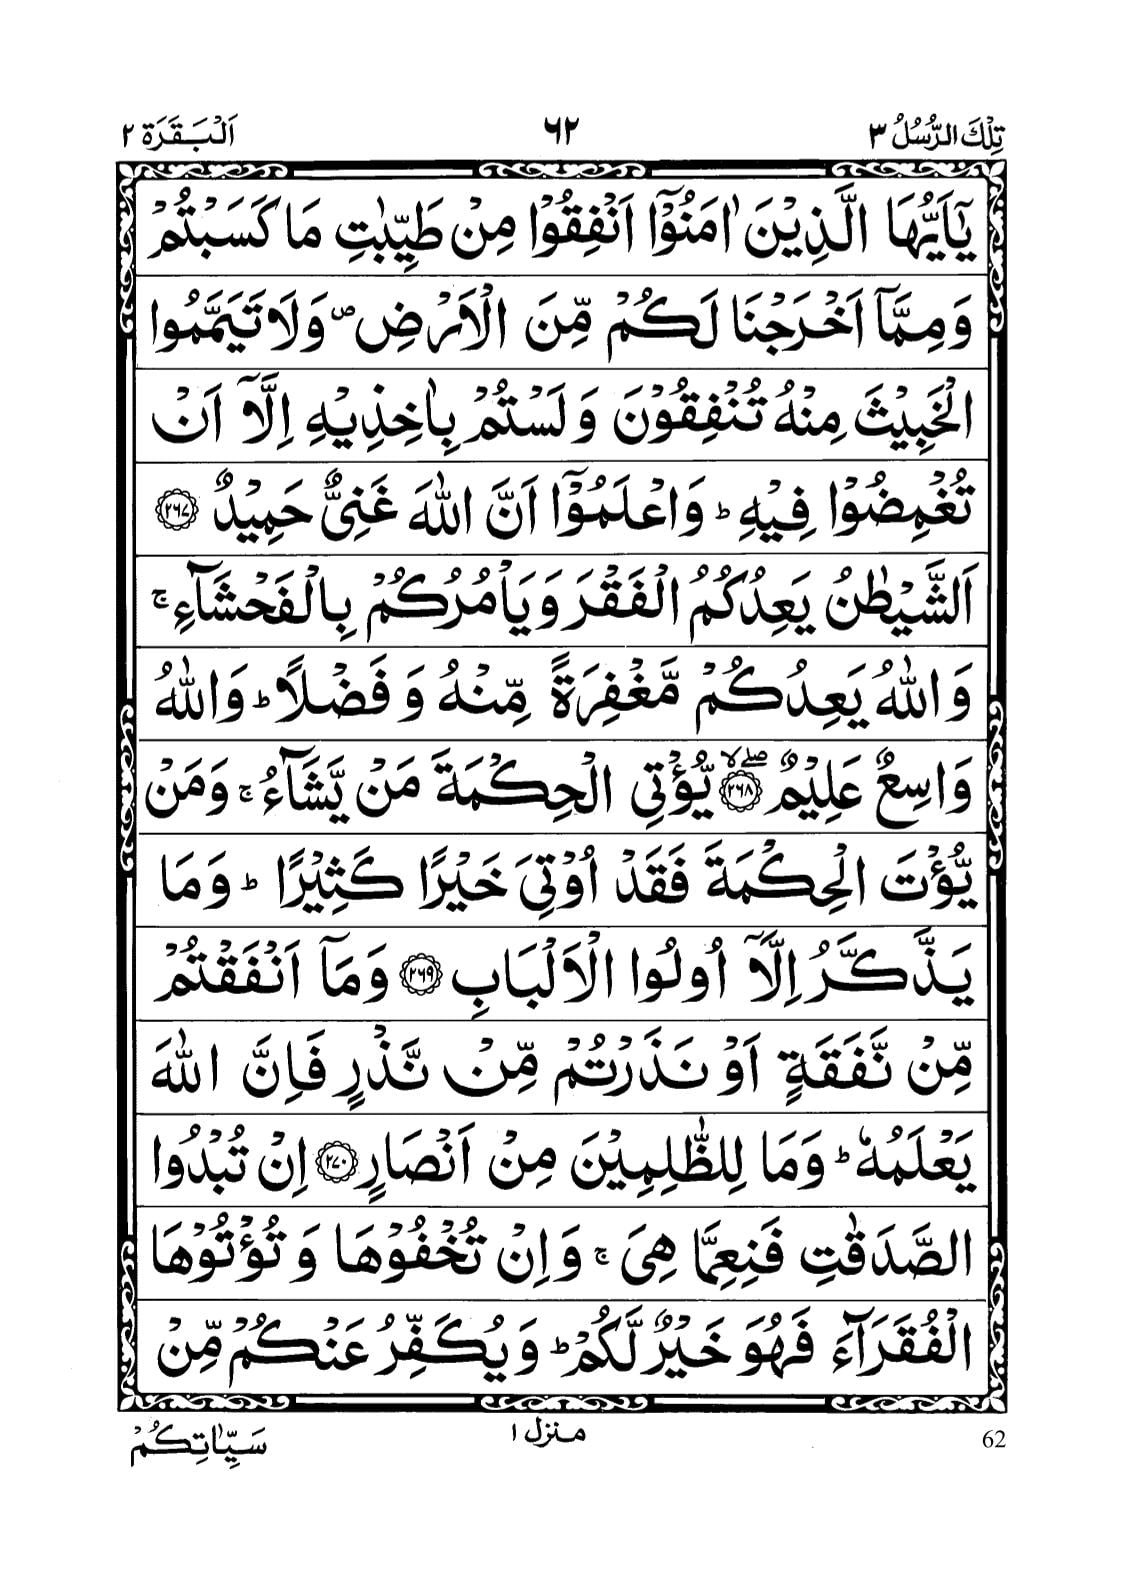 تِلْكَ الرُّسُلُ ٣
٦٢
اَلْبَقَرَة ٢
يٰٓاَيُّهَا الَّذِيْنَ اٰمَنُوْٓا اَنْفِقُوْا مِنْ طَيِّبٰتِ مَا كَسَبْتُمْ
وَمِمَّآ اَخْرَجْنَا لَكُمْ مِّنَ الْاَرْضِ ۪ وَلَا تَيَمَّمُوا
الْخَبِيْثَ مِنْهُ تُنْفِقُوْنَ وَلَسْتُمْ بِاٰخِذِيْهِ اِلَّآ اَنْ
تُغْمِضُوْا فِيْهِ ؕ وَاعْلَمُوْٓا اَنَّ اللّٰهَ غَنِيٌّ حَمِيْدٌ ۝٢٦٧
اَلشَّيْطٰنُ يَعِدُكُمُ الْفَقْرَ وَيَاْمُرُكُمْ بِالْفَحْشَآءِ ۚ
وَاللّٰهُ يَعِدُكُمْ مَّغْفِرَةً مِّنْهُ وَفَضْلًا ؕ وَاللّٰهُ
وَاسِعٌ عَلِيْمٌ ۝٢٦٨ ۖۙ يُّؤْتِي الْحِكْمَةَ مَنْ يَّشَآءُ ۚ وَمَنْ
يُّؤْتَ الْحِكْمَةَ فَقَدْ اُوْتِيَ خَيْرًا كَثِيْرًا ؕ وَمَا
يَذَّكَّرُ اِلَّآ اُولُوا الْاَلْبَابِ ۝٢٦٩ وَمَآ اَنْفَقْتُمْ
مِّنْ نَّفَقَةٍ اَوْ نَذَرْتُمْ مِّنْ نَّذْرٍ فَاِنَّ اللّٰهَ
يَعْلَمُهٗ ؕ وَمَا لِلظّٰلِمِيْنَ مِنْ اَنْصَارٍ ۝٢٧٠ اِنْ تُبْدُوا
الصَّدَقٰتِ فَنِعِمَّا هِيَ ۚ وَاِنْ تُخْفُوْهَا وَتُؤْتُوْهَا
الْفُقَرَآءَ فَهُوَ خَيْرٌ لَّكُمْ ؕ وَيُكَفِّرُ عَنْكُمْ مِّنْ
سَيِّاٰتِكُمْ
منزل ١
62